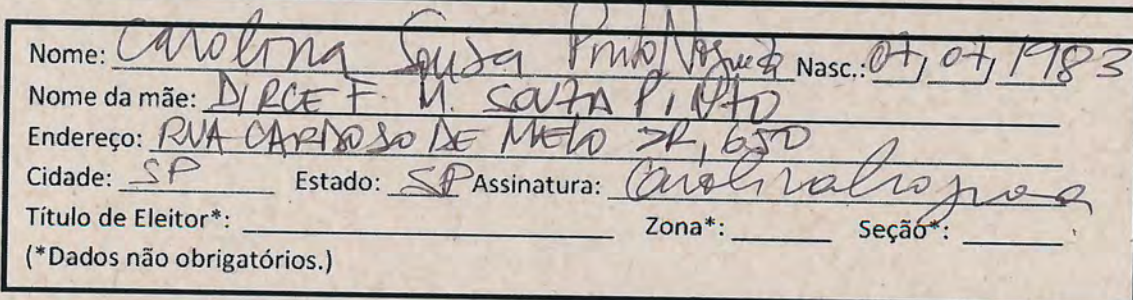 Nome: Carolina Souza Pinto Nogueira Nasc.: 07, 07, 1983
Nome da mãe: DIRCE F. M. SOUZA PINTO
Endereço: RUA CARDOSO DE MELO JR, 650
Cidade: SP Estado: SP Assinatura:
Título de Eleitor*: Zona*: Seção*:
(*Dados não obrigatórios.)